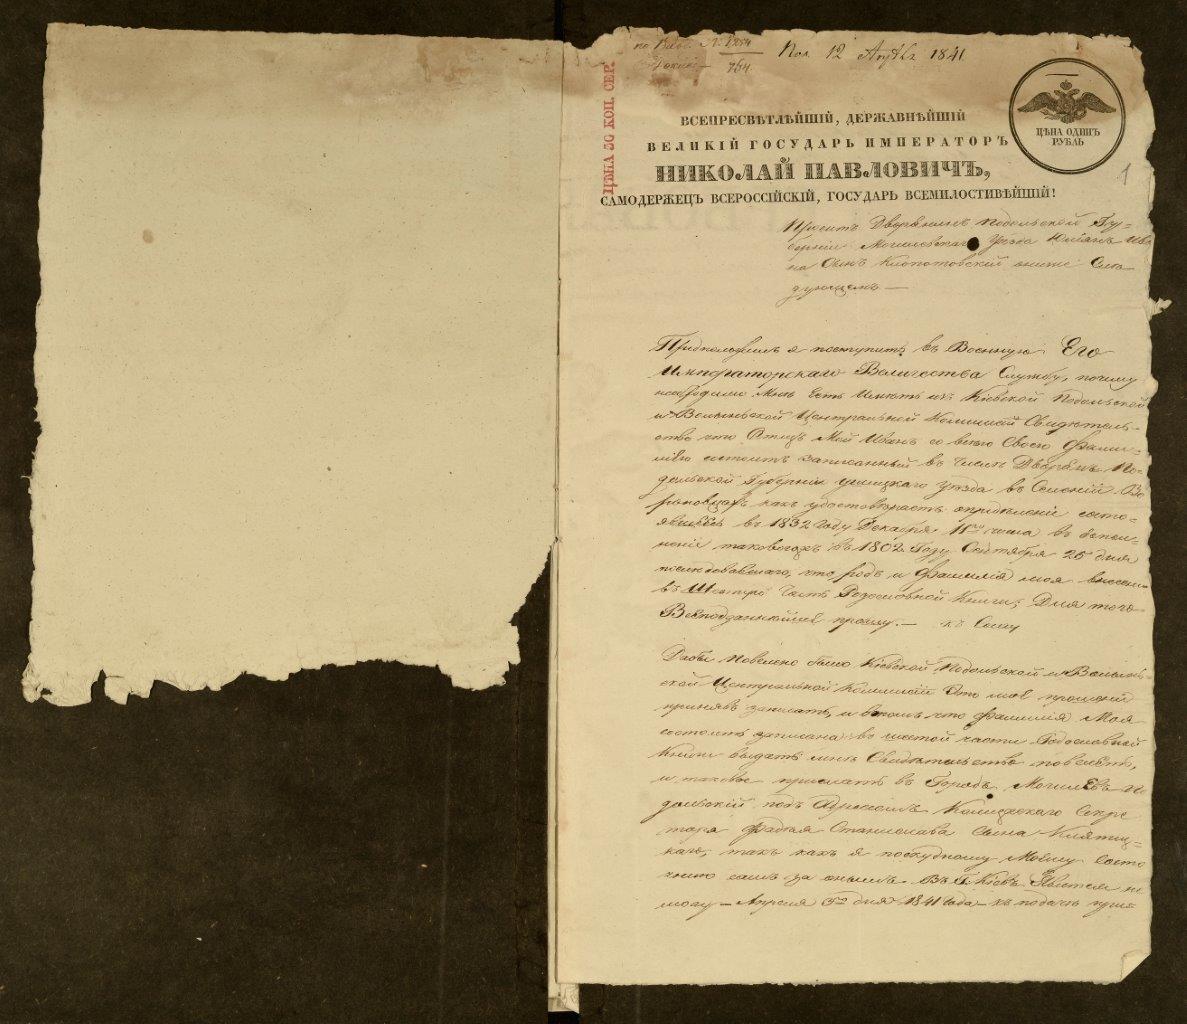 по Вход. № 1254
764.
Пол. 12 Апрѣля 1841
ЦѢНА 30 КОП. СЕР.
ЦѢНА ОДИНЪ
РУБЛЬ
1
ВСЕПРЕСВѢТЛѢЙШІЙ, ДЕРЖАВНѢЙШІЙ
ВЕЛИКІЙ ГОСУДАРЬ ИМПЕРАТОРЪ
НИКОЛАЙ ПАВЛОВИЧЪ,
САМОДЕРЖЕЦЪ ВСЕРОССІЙСКІЙ, ГОСУДАРЬ ВСЕМИЛОСТИВѢЙШІЙ!
Проситъ Дворянинъ Подольской Гу-
берніи Могилевскаго Уѣзда Юліянъ Ива
на Сынъ Клопотовскій ониже Слѣ-
дующемъ —
я поступить въ Военную Его
Императорскаго Величества Службу, почему
необходимо Мнѣ Есть Имѣть изъ Кіевской Подольской
и Волынской Центральной Коммисіи Свидѣтель-
ство что Отецъ Мой Иванъ со всею Своею Фами-
ліею состоитъ записанный въ Числѣ Дворянъ По-
дольской Губерніи ушицкаго уѣзда въ Селеніи
какъ удостовѣряетъ опредѣленіе состо-
явшееся въ 1832 Году Декабря 11го числа въ допол-
неніе таковогожъ въ 1802 Году Сентября 25 дня
послѣдовавшаго, что родъ и фамилія моя внесены
въ Шестую Часть Родословной Книги; Для того
Всеподданнѣйше прошу. — къ Сему
Дабы повелено было Кіевской Подольской и Волын-
ской Центральной Коммисіи Это мое прошеніе
принявъ записать, и втомъ что фамилія Моя
состоитъ записана въ шестой части Родословной
Книги выдать мнѣ Свидѣтельство повелеть,
и таковое прислать въ Городъ Могилевъ По
дольскій подъ Адресомъ Колежскаго Секре
таря Фадея Станислава Сына
каго, такъ какъ я поскудному Моему Состо
янію самъ за онымъ Въ Г. Кіевъ Явится не
могу — Апреля 3го дня 1841 Года — къ подачѣ